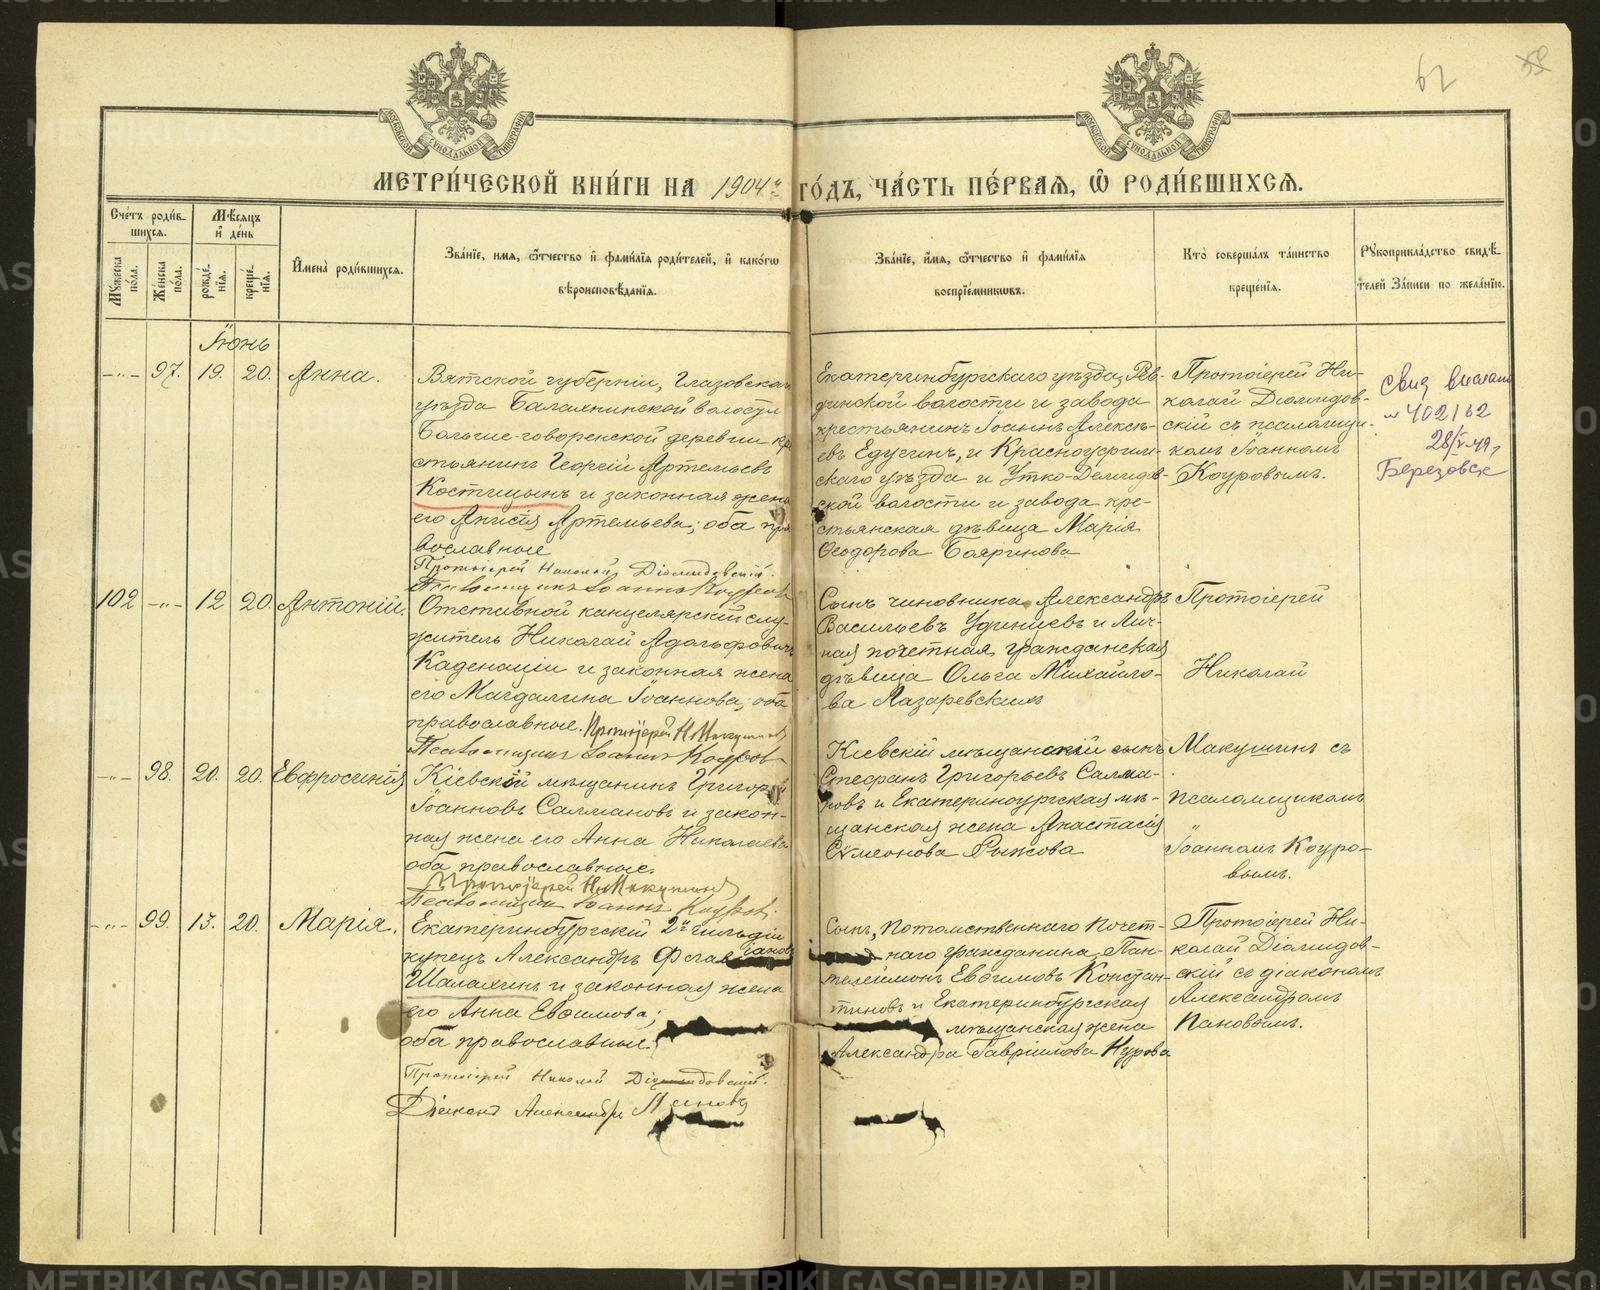 62
59
МОСКОВСКОЙ СѴНОДАЛЬНОЙ ТИПОГРАФІИ
МОСКОВСКОЙ СѴНОДАЛЬНОЙ ТИПОГРАФІИ
МЕТРИ́ЧЕСКОЙ КНИ́ГИ НА 1904й ГО́ДЪ, ЧА́СТЬ ПЕ́РВАѦ, Ѡ҆ РОДИ́ВШИХСѦ.
Сче́тъ роди́в-
шихсѧ.
Мꙋ́жеска по́ла.
Же́нска по́ла.
Мѣ́сѧцъ
и҆ де́нь
рожде́-
нїѧ.
креще́-
нїѧ.
И҆мена̀ роди́вшихсѧ.
Зва́нїе, и҆мѧ, ѻ҆́тчество и҆ фами́лїѧ роди́телей, и҆ како́гѡ
вѣроисповѣ́данїѧ.
Зва́нїе, и҆́мѧ, ѻ҆́тчество и҆ фами́лїѧ
воспрїе́мникѡвъ.
Кто̀ соверша́лъ та́инство
креще́нїѧ.
Рꙋкоприкла́дство свидѣ́-
телей за́писи по жела́нїю.
Іюнь
-"- 97. 19. 20. Анна.
Вятской губерніи, Глазовскаго
уѣзда Балахнинской волости
говоренской деревни кре
стьянинъ Георгій Артемьевъ
Костицынъ и законная жена
его Анисія Артемьева; оба пра
вославные
Протоіерей Николай Діомидовскій.
Псаломщикъ Іоаннъ Коуровъ
Екатеринбургскаго уѣзда, Рев-
динской волости и завода
крестьянинъ Іоаннъ Алексѣ-
евъ Едугинъ, и Красноуфим-
скаго уѣзда и Утко-Демидов-
ской волости и завода кре-
стьянская дѣвица Марія
Ѳеодорова Бояринова
Протоіерей Ни-
колай Діомидов-
скій съ псаломщи-
комъ Іоанномъ
Коуровымъ.
Свид выслано
№ 402162
28/V-49,
Березовск
102 -"- 12 20. Антоній.
Отставной канцелярскій слу-
житель Николай Адольфовичъ
Каденаціи и законная жена
его Магдалина Іоаннова; оба
православные. Протоіерей Н. Макушинъ
Псаломщикъ Іоаннъ Коуровъ
Сынъ чиновника Александръ
Васильевъ Удинцевъ и Лич-
ная почетная гражданская
дѣвица Ольга Михайло-
ва Лазаревскихъ
Протоіерей
Николай
-"- 98. 20. 20. Евфросинія
Кіевскій мѣщанинъ Григорій
Іоанновъ Салмановъ и закон-
ная жена его Анна Николаева
оба православные.
Протоіерей Н. Макушинъ
Псаломщикъ Іоаннъ Коуровъ.
Кіевскій мѣщанскій сынъ
Стефанъ Григорьевъ Салма-
новъ и Екатеринбургская мѣ-
щанская жена Анастасія
Сѵмеонова Рыжова
Макушинъ съ
псаломщикомъ
Іоанномъ Коуро-
вымъ.
-"- 99. 13. 20. Марія.
Екатеринбургскій 2й гильдіи
купецъ Александръ
Шалахинъ и законная жена
его Анна Евѳимова;
оба православные
Протоіерей Николай Діомидовскій.
Діаконъ Александръ Пановъ
Сынъ, потомственнаго почет-
наго гражданина, Пан-
телеймонъ Евѳимовъ Констан-
тиновъ и Екатеринбургская
мѣщанская жена
Александра Гавріилова Нурова
Протоіерей Ни-
колай Діомидов-
скій съ діакономъ
Александромъ
Пановымъ.
METRIKI.GASO-URAL.RU